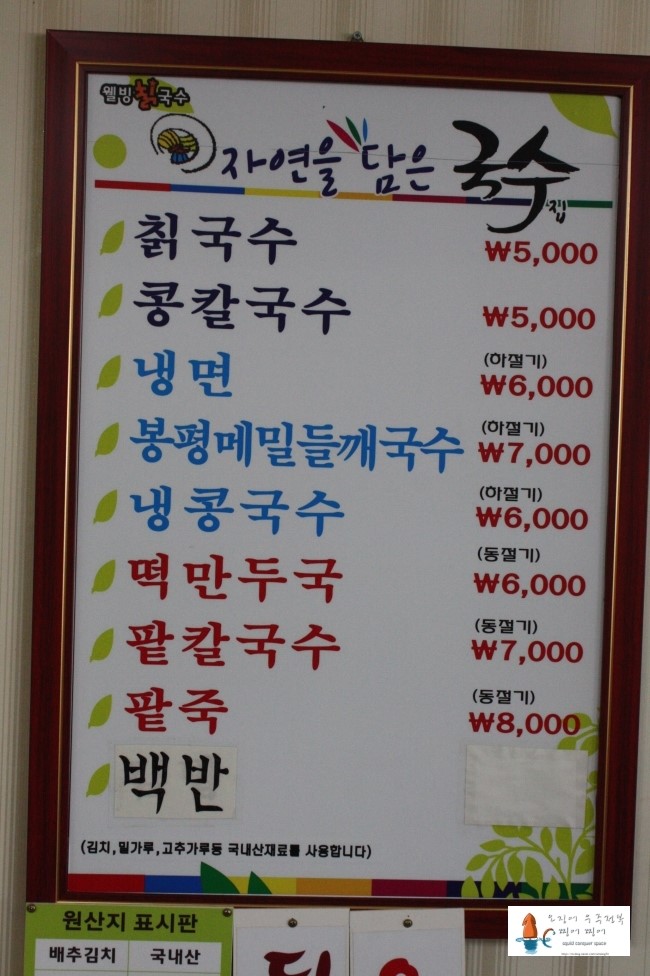 웰빙칡국수
자연을 담은 국수집
칡국수 ₩5,000
콩칼국수 ₩5,000
냉면 (하절기) ₩6,000
봉평메밀들깨국수 (하절기) ₩7,000
냉콩국수 (하절기) ₩6,000
떡만두국 (동절기) ₩6,000
팥칼국수 (동절기) ₩7,000
팥죽 (동절기) ₩8,000
백반
(김치,밀가루,고추가루등 국내산재료를 사용합니다)
원산지 표시판
배추김치 국내산
오징어 우주정복
찜어 찜어
squid conquer space